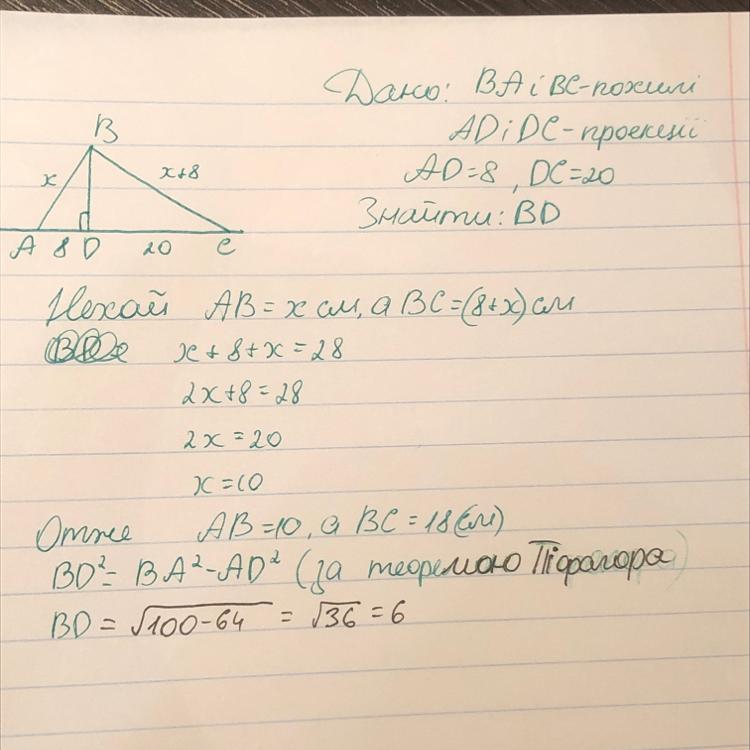 Дано: BA і BC-похилі
AD і DC-проекції
AD=8, DC=20
Знайти: BD
B
x
x+8
A 8 D 20 C
Нехай AB = x см, а BC=(8+x) см
x+8+x=28
2x+8=28
2x=20
x=10
Отже AB=10, а BC=18(см)
BD²= BA²-AD² (за теоремою Піфагора)
BD = √100-64 = √36 = 6